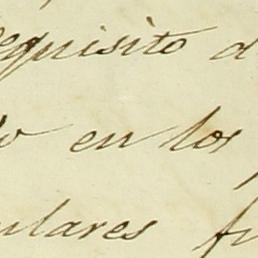 requisito d
o en los
ulares fu